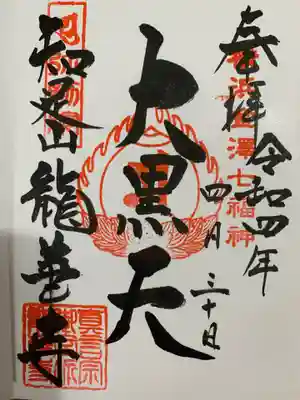 奉拝 令和四年
浜金澤七福神
四月三十日
大黒天
知足山 龍華寺
真言宗
御室派